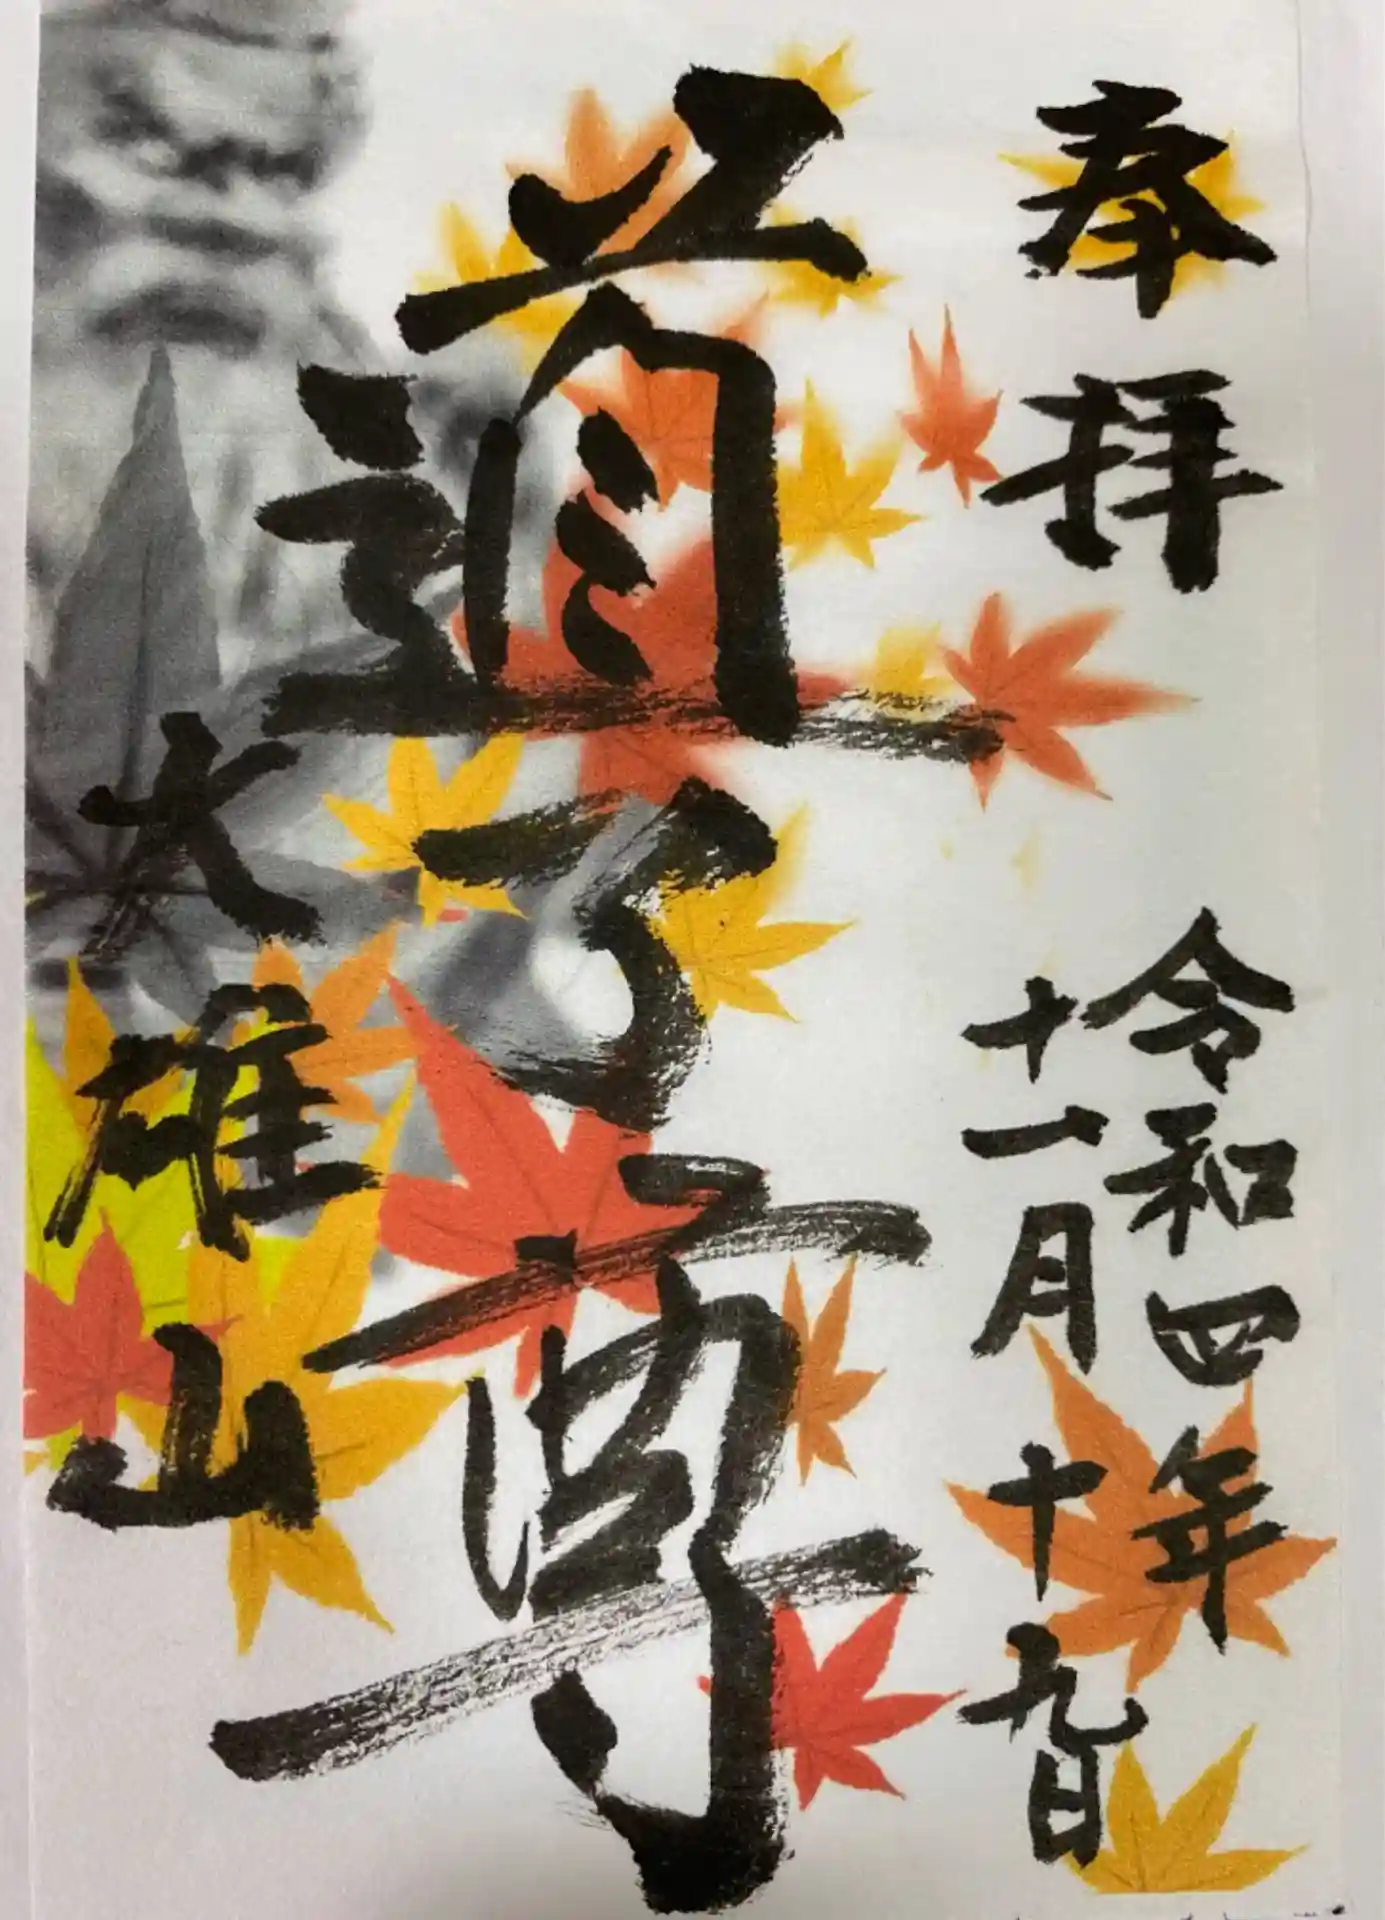 奉拝
令和四年
十一月十九日
道了尊
大雄山